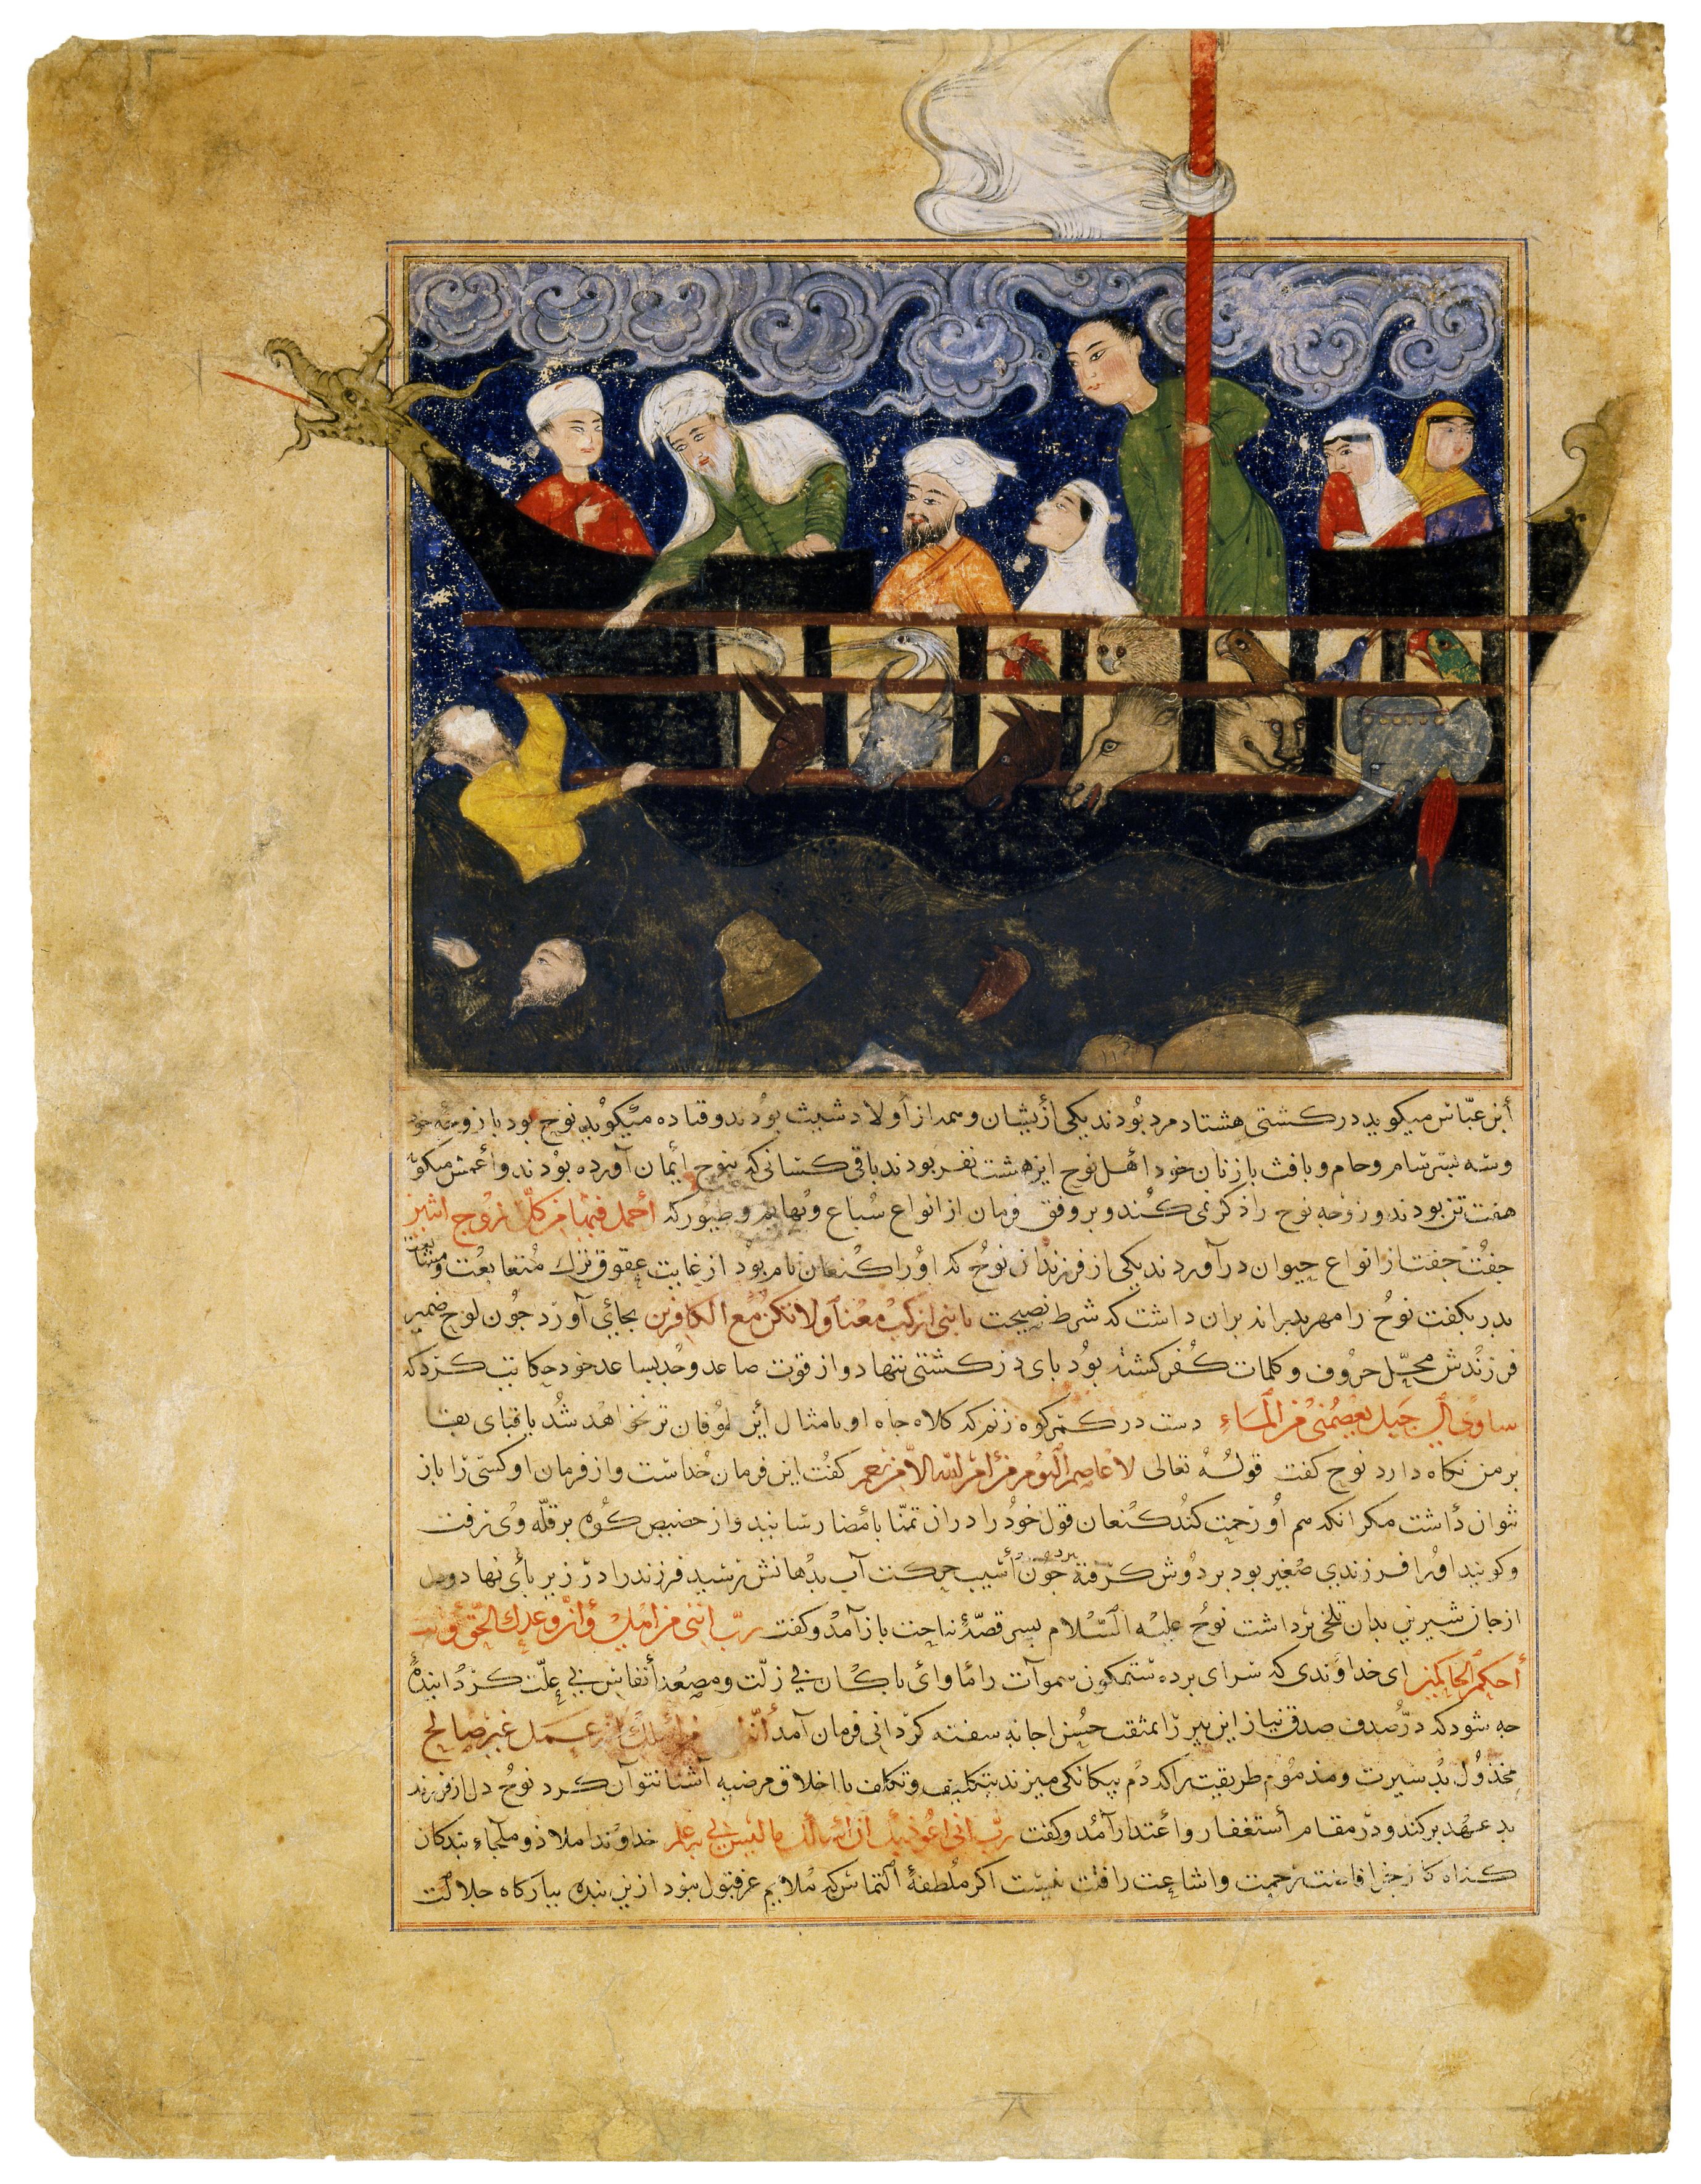 أبن عبّاس میکوید در کشتی هشتاد مرد بُودند یکی أزیشان و سمد از أولاد شیث بوُدند و قتاده میْکویْد نوح بود با زوجه خود
وسه پسر سام و حام و یافث با زنان خود اهْل نوح این هشت نفر بودند باقی کسانی که بنوح أیمان آورده بوْدند و أعمش میکوید
هفت تن بودند و زوْجه نوح را ذکر نمی کنند و بر وفق فرمان از انواع سُباع و بُهایم و طیور که احمل فیها من کلّ زوْج اثنین
جفْت جفت از انواع حیوان در آوردند یکی از فرزندان نوحُ که اوُرا کنعان نام بوُد از غایت عقوق ترك مُتعابعْت و مشایعت
بدر بکفت نوحُ را مهر بدرانه بران داشت که شرط نصیحت یا بنی ارکبْ معْنا ولا تکنْ مع الکافرین بجایْ آورد جوُن لوح ضمیر
فرزندش محلّ حروُف و کلمات کفر کشتهْ بوُد بای در کشتی ننهاد و از قوت صاعد و حدّ ساعد خود حکایت کرد که
سآوی الی جبل یعْصمُنی من الْمآء دست در کمر کوه زنم که کلاه جاه او بامثال أین طوُفان تر نخواهد شد یا قبای بقا
بر من نکاه دارد نوح کفت قولُهُ تعالی لا عاصم الْیوْم من أمْر الله الاّ من رحم کفْت این فرمان خداست و از فرمان او کسی را باز
نتوان دأشت مکر انکه هم أوُ رحمت کُند کنعان قول خوُد را در ان تمنّا بأمضا رسانید و از حضیض کُوه بر قلّه وی رفت
و کویند اوُرا فرزندی صغیر بود بر دُوش کرفته برد جوُن أسیب حرکت آب بدْهانش رسید فرزند را در زیر بأی نهاد و دل
از جان شیرین بدان تلخی برداشت نوحُ علیْه السّلام بسر قصّهٔ مناجت باز آمدْ و کفت ربّ انّ ابْنی من اهْلیْ وانّ وعْدك الْحقّ وأنت
أحکم الحاکمین ای خداوُندی که سرای برده ستمکون سموآت را مأوای باکان بی زلّت و مصعد أنفاس بی علّت کردْانیدهٔ
جه شود که درّ صدف صدق نیاز این بیر را بمثقب حسُن اجابه سفته کردْانی فرمان آمد أنّهُ لیْس من أهْلك انّه عمل غیر صالح
مخذوُل بدْ سیرت و مذموُم طریقت را که دم بیکانکی میزند بتکلیف و تکلف با اخلاق مرضیه آشنا نتوآن کرد نوحُ دل از فرزند
بد عهد برکند و درْ مقام أستغفار و أعتذار آمدْ و کفت ربّ انی اعُوذ بك ان اسألك ما لیْس لی به علم خداونْدا ملاذ و ملجاء بندکان
کناه کار جز افاضت رحمت و اشاعت رافت نیست اکر ملُطفهٔ التماس که ملایم عز قبول نبود ازین بنده ببارکاه جلالت